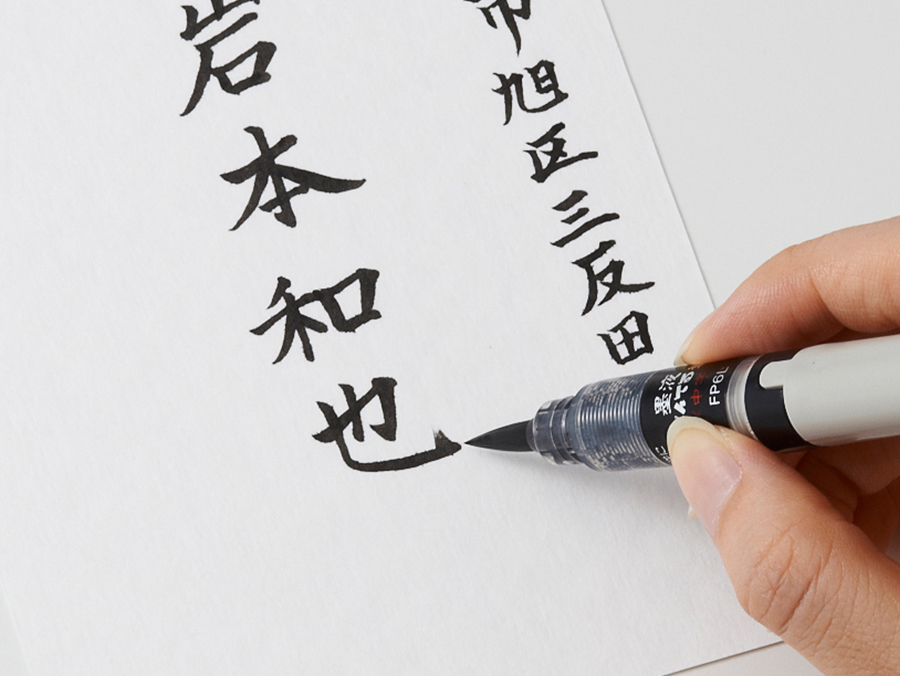 市旭区三反田
岩本和也
墨液
FP6L